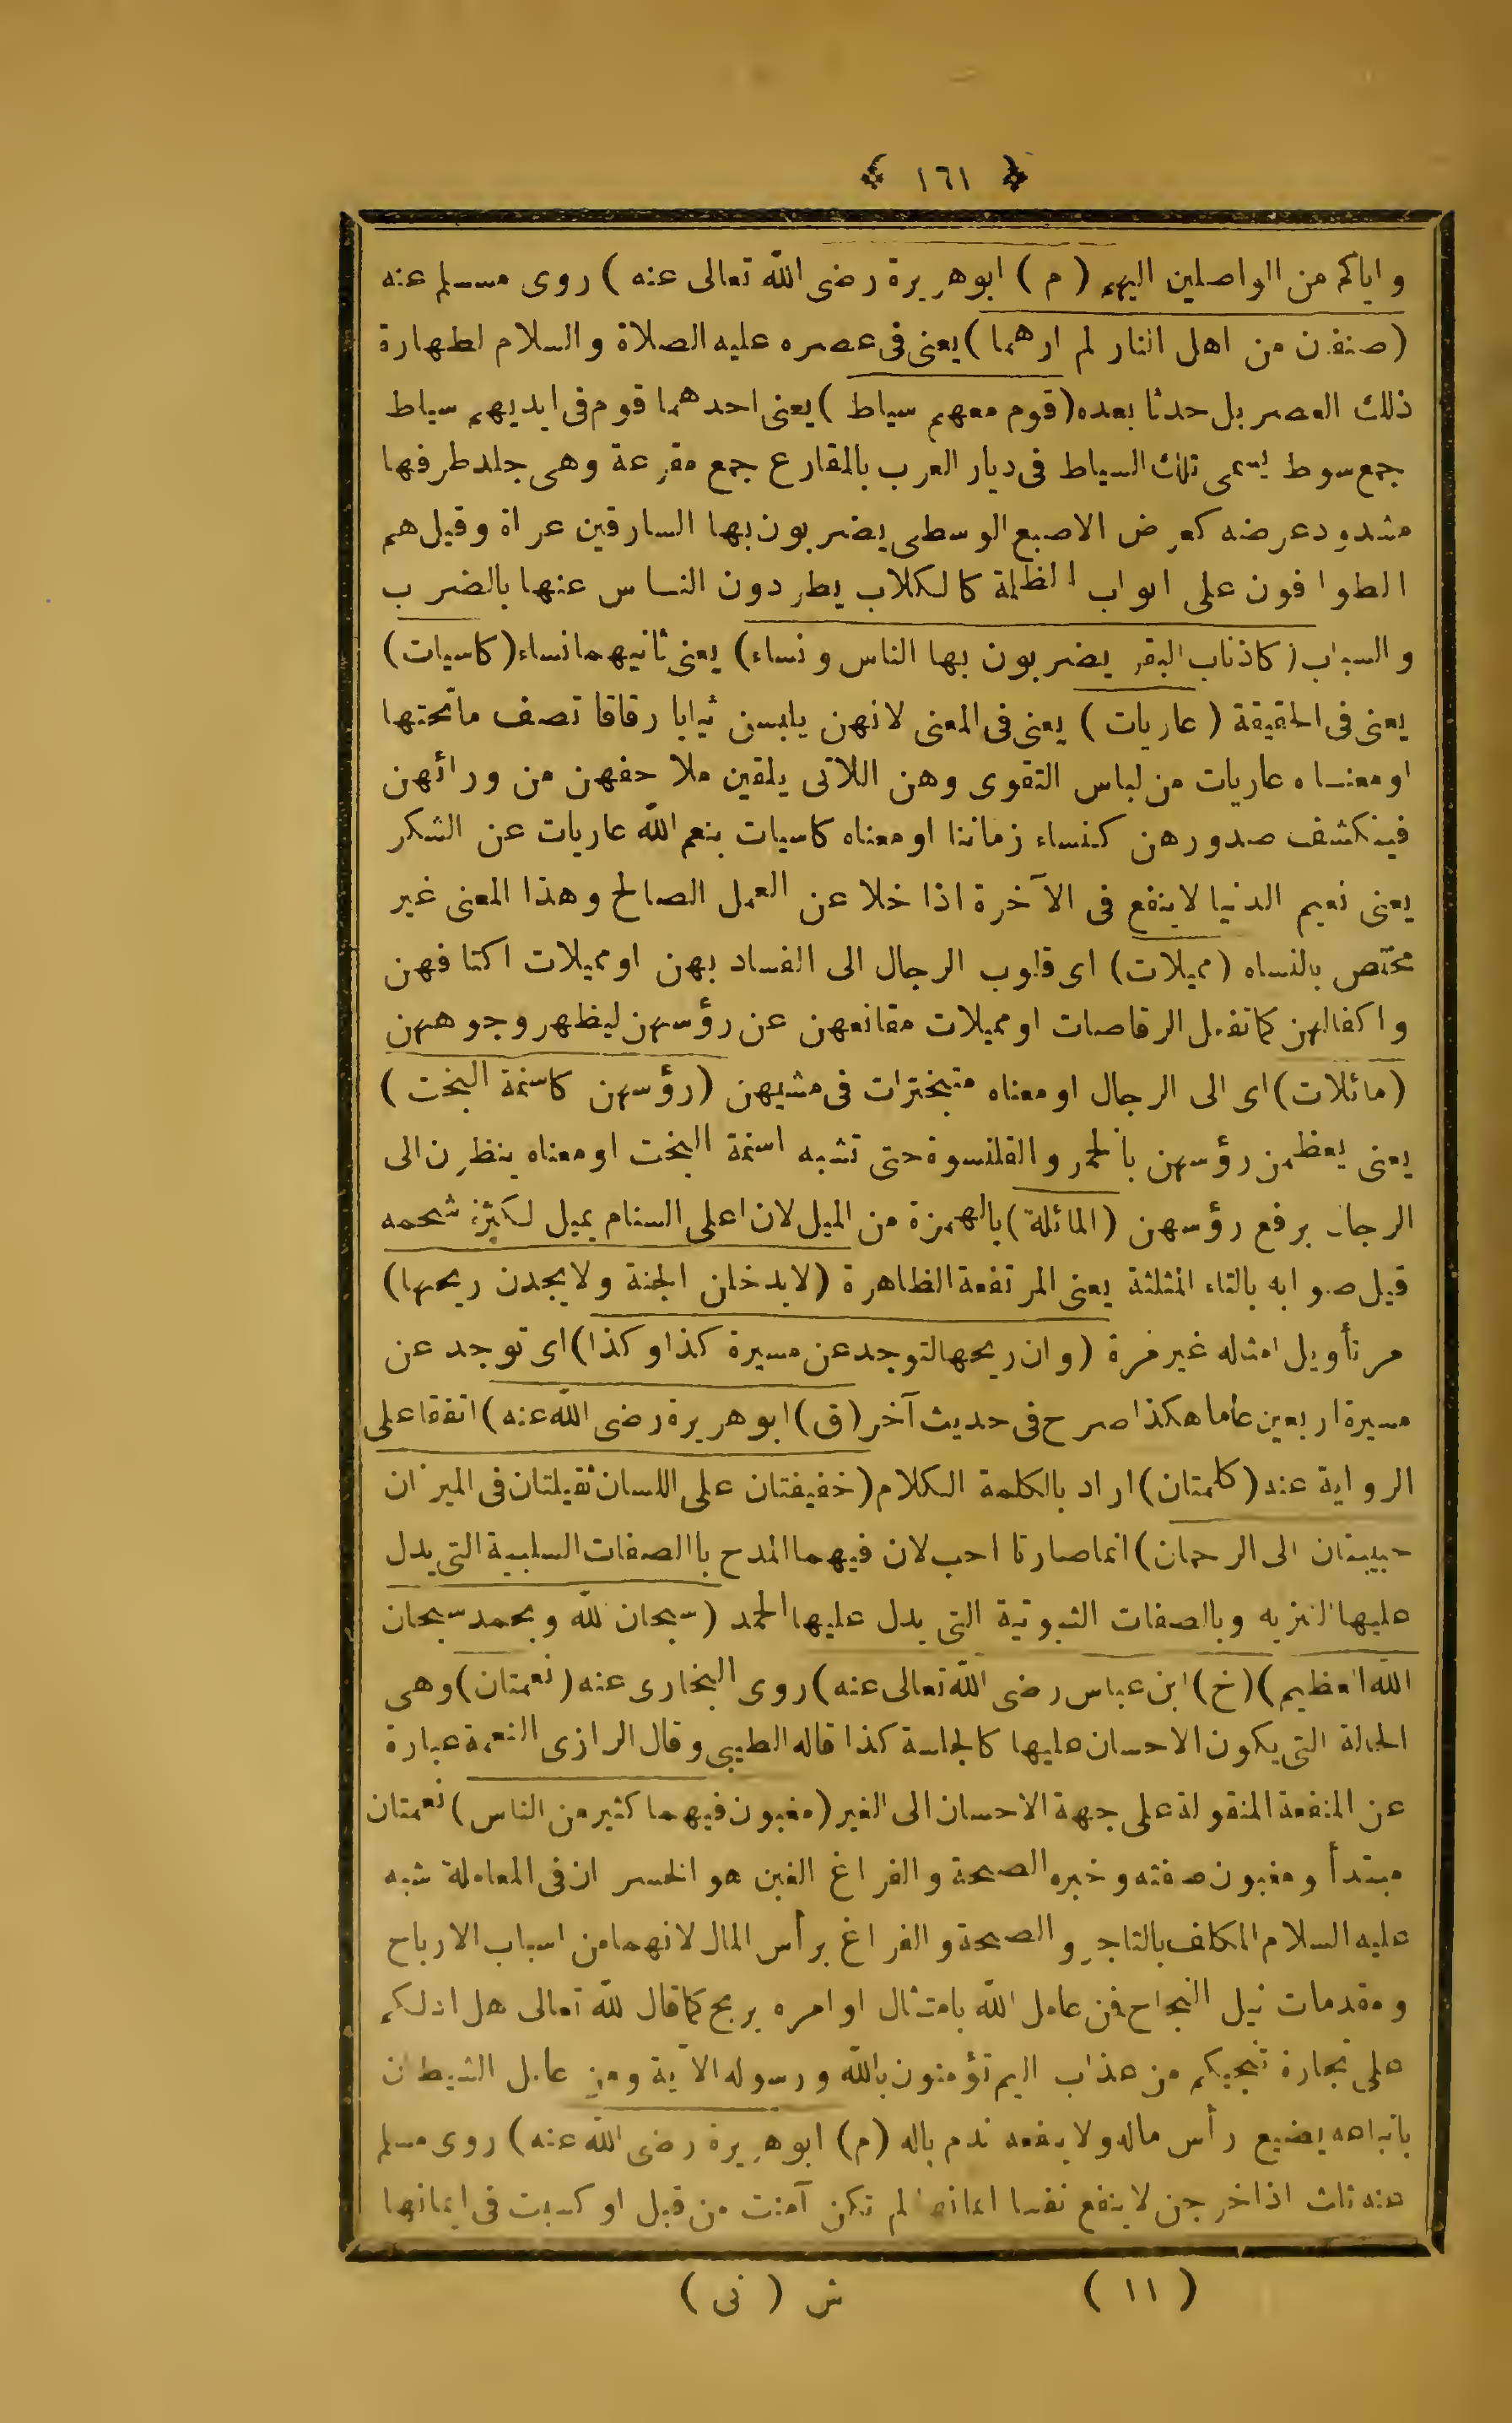 ﴿ ١٦١ ﴾
و اياكم من الواصلين اليهم ( م ) ابو هريرة رضى الله تعالى عنه ) روى مسلم عنه
(صنفان من اهل النار لم ارهما ) يعنى فى عصره عليه الصلاة و السلام لطهارة
ذلك العصر بل حدثا بعده (قوم معهم سياط ) يعنى احدهما قوم فى ايديهم سياط
جمع سوط يسمى تلك السياط فى ديار العرب بالمقارع جمع مقرعة وهى جلد طرفها
مشدود عرضه كعرض الاصبع الوسطى يضربون بها السارقين عراة وقيل هم
الطوافون على ابواب الظلمة كالكلاب يطردون الناس عنها بالضرب
و السباب ( كاذناب البقر يضربون بها الناس و نساء ) يعنى ثانيهما نساء ( كاسيات )
يعنى فى الحقيقة ( عاريات ) يعنى فى المعنى لانهن يلبسن ثيابا رقاقا تصف ماتحتها
او معناه عاريات من لباس التقوى وهن اللاتى يلقين ملاحفهن من ورائهن
فينكشف صدورهن كنساء زماننا او معناه كاسيات بنعم الله عاريات عن الشكر
يعنى نعيم الدنيا لاينفع فى الآخرة اذا خلا عن العمل الصالح وهذا المعنى غير
مختص بالنساء (مميلات) اى قلوب الرجال الى الفساد بهن او مميلات اكتافهن
و اكفالهن كاتفعل الرقاصات او مميلات مقانعهن عن رؤسهن ليظهر وجوههن
(مائلات) اى الى الرجال او معناه متبخترات فى مشيهن (رؤسهن كاسنمة البخت )
يعنى يعظمن رؤسهن بالخمر و القلنسوة حتى تشبه اسنمة البخت او معناه ينظرن الى
الرجال برفع رؤسهن (المائلة) بالهمزة من الميل لان اعلى السنام يميل لكثرة شحمه
قيل صوابه بالثاء المثلثة يعنى المرتفعة الظاهرة (لايدخلن الجنة ولايجدن ريحها)
مر تأويل امثاله غير مرة (و ان ريحها لتوجد عن مسيرة كذا و كذا) اى توجد عن
مسيرة اربعين عاما هكذا صرح فى حديث آخر (ق) ابو هريرة رضى الله عنه) اتفقا على
الرواية عند (كلمتان) اراد بالكلمة الكلام (خفيفتان على اللسان ثقيلتان فى الميزان
حبيبتان الى الرحمان) انما صارتا احب لان فيهما المدح باالصفات السلبية التى يدل
عليها التنزيه وبالصفات الثبوتية التى يدل عليها الحمد (سبحان لله و بحمد سبحان
الله العظيم) (خ) ابن عباس رضى الله تعالى عنه) روى البخارى عنه (نعمتان) وهى
الحالة التى يكون الاحسان عليها كالجلسة كذا قاله الطيبى وقال الرازى النعمة عبارة
عن المنفعة المنقولة على جهة الاحسان الى الغير (مغبون فيهما كثير من الناس) نعمتان
مبتدأ و مغبون صفته و خبره الصحة و الفراغ الغبن هو الخسران فى المعاملة شبه
عليه السلام المكلف بالتاجر و الصحة و الفراغ برأس المال لانهما من اسباب الارباح
و مقدمات نيل النجاح فن عامل الله بامتثال اوامره يربح كماقال لله تعالى هل ادلكم
على تجارة تنجيكم من عذاب اليم تؤمنون بالله و رسوله الآية و من عامل الشيطان
باتباعه يضيع رأس ماله و لا ينفعه ندم باله (م) ابو هريرة رضى الله عنه) روى مسلم
عنه ثلث اذا خرجن لاينفع نفسا ايمانها لم تكن آمنت من قبل او كسبت فى ايمانها
( ١١ ) ش ( نى )